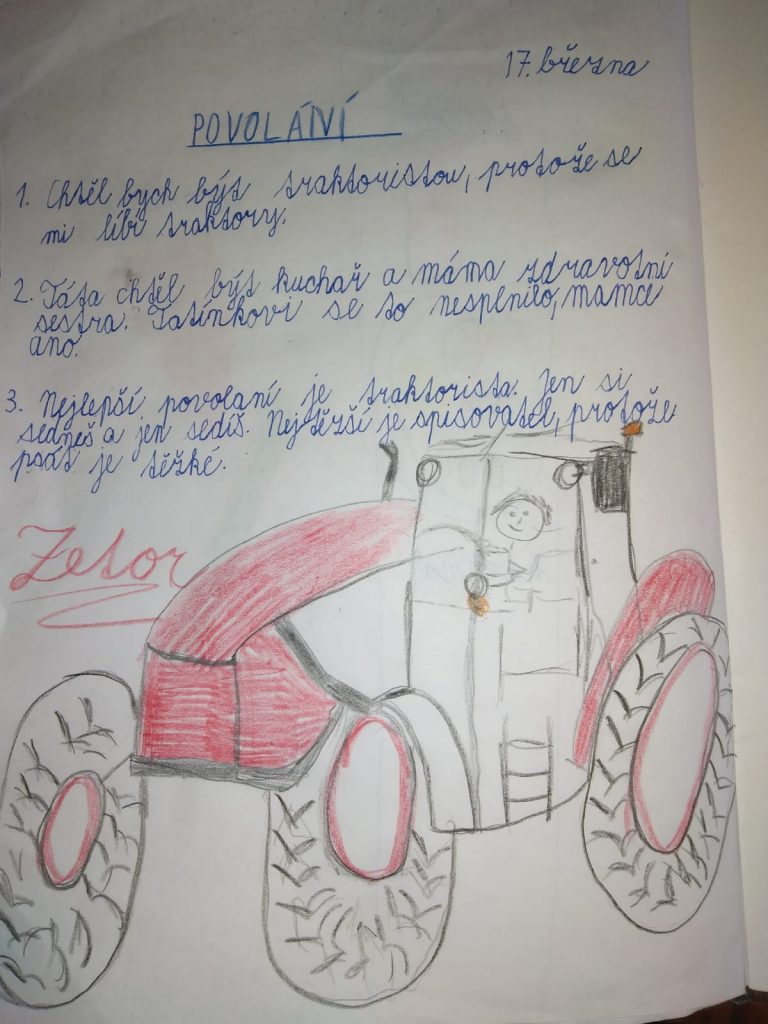 17. března
POVOLÁNÍ
1. Chtěl bych být traktoristou, protože se
mi líbí traktory.
2. Táta chtěl být kuchař a máma zdravotní
sestra. Tatínkovi se to nesplnilo, mamce
ano.
3. Nejlepší povolaní je traktorista. Jen si
sedneš a jen sedíš. Nejtěžší je spisovatel, protože
psát je těžké.
Zetor